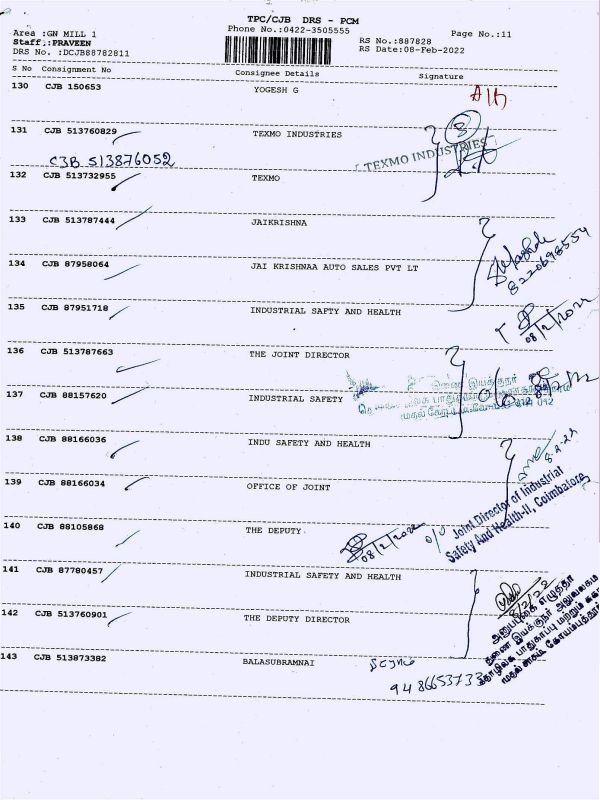 TPC/CJB DRS - PCM
Area :GN MILL 1
Phone No.:0422-3505555
Page No.:11
Staff.:PRAVEEN
RS No.:887828
DRS No. :DCJB88782811
RS Date:08-Feb-2022
S No Consignment No Consignee Details Signature
130 CJB 150653 YOGESH G
131 CJB 513760829 TEXMO INDUSTRIES
TEXMO INDUSTRIES
CJB 513876052
132 CJB 513732955 TEXMO
133 CJB 513787444 JAIKRISHNA
134 CJB 87958064 JAI KRISHNAA AUTO SALES PVT LT
8220698554
135 CJB 87951718 INDUSTRIAL SAFTY AND HEALTH
08/2/2022
136 CJB 513787663 THE JOINT DIRECTOR
137 CJB 88157620 INDUSTRIAL SAFETY
8/2/22
138 CJB 88166036 INDU SAFETY AND HEALTH
8-2-22
139 CJB 88166034 OFFICE OF JOINT
Joint Director of Industrial
Safety And Health-II, Coimbatore
140 CJB 88105868 THE DEPUTY
08/2/2022
141 CJB 87780457 INDUSTRIAL SAFETY AND HEALTH
8/2/22
142 CJB 513760901 THE DEPUTY DIRECTOR
143 CJB 513873382 BALASUBRAMNAI